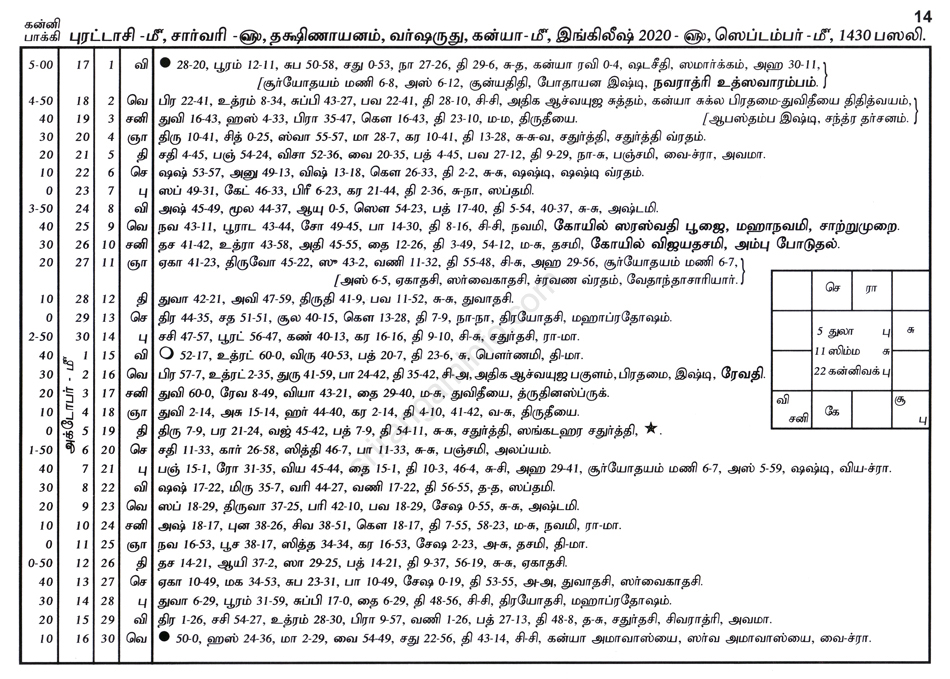 14
கன்னி
பாக்கி புரட்டாசி -மீ, சார்வரி -௵, தக்ஷிணாயனம், வர்ஷருது, கன்யா-மீ, இங்கிலீஷ் 2020 - ௵, ஸெப்டம்பர் -மீ, 1430 பஸலி.
5-00 17 1 வி ● 28-20, பூரம் 12-11, சுப 50-58, சது 0-53, நா 27-26, தி 29-6, சு-த, கன்யா ரவி 0-4, ஷடசீதி, ஸமார்க்கம், அஹ 30-11,
[சூர்யோதயம் மணி 6-8, அஸ் 6-12, சூன்யதிதி, போதாயன இஷ்டி, நவராத்ரி உத்ஸவாரம்பம்.
4-50 18 2 வெ பிர 22-41, உத்ரம் 8-34, சுப்பி 43-27, பவ 22-41, தி 28-10, சி-சி, அதிக ஆச்வயுஜ சுத்தம், கன்யா சுக்ல பிரதமை-துவிதீயை திதித்வயம்,
40 19 3 சனி துவி 16-43, ஹஸ் 4-33, பிரா 35-47, கௌ 16-43, தி 23-10, ம-ம, திருதீயை. [ஆபஸ்தம்ப இஷ்டி, சந்த்ர தர்சனம்.
30 20 4 ஞா திரு 10-41, சித் 0-25, ஸ்வா 55-57, மா 28-7, கர 10-41, தி 13-28, சு-சு-வ, சதுர்த்தி, சதுர்த்தி வ்ரதம்.
20 21 5 தி சதி 4-45, பஞ் 54-24, விசா 52-36, வை 20-35, பத் 4-45, பவ 27-12, தி 9-29, நா-சு, பஞ்சமி, வை-ச்ரா, அவமா.
10 22 6 செ ஷஷ் 53-57, அனு 49-13, விஷ் 13-18, கௌ 26-33, தி 2-2, சு-சு, ஷஷ்டி, ஷஷ்டி வ்ரதம்.
0 23 7 பு ஸப் 49-31, கேட் 46-33, பிரீ 6-23, கர 21-44, தி 2-36, சு-நா, ஸப்தமி.
3-50 24 8 வி அஷ் 45-49, மூல 44-37, ஆயு 0-5, ஸௌ 54-23, பத் 17-40, தி 5-54, 40-37, சு-சு, அஷ்டமி.
40 25 9 வெ நவ 43-11, பூராட 43-44, சோ 49-45, பா 14-30, தி 8-16, சி-சி, நவமி, கோயில் ஸரஸ்வதி பூஜை, மஹாநவமி, சாற்றுமுறை.
30 26 10 சனி தச 41-42, உத்ரா 43-58, அதி 45-55, தை 12-26, தி 3-49, 54-12, ம-சு, தசமி, கோயில் விஜயதசமி, அம்பு போடுதல்.
20 27 11 ஞா ஏகா 41-23, திருவோ 45-22, ஸு 43-2, வணி 11-32, தி 55-48, சி-சு, அஹ 29-56, சூர்யோதயம் மணி 6-7,
[அஸ் 6-5, ஏகாதசி, ஸர்வைகாதசி, ச்ரவண வ்ரதம், வேதாந்தாசாரியார்.
10 28 12 தி துவா 42-21, அவி 47-59, திருதி 41-9, பவ 11-52, சு-சு, துவாதசி.
0 29 13 செ திர 44-35, சத 51-51, சூல 40-15, கௌ 13-28, தி 7-9, நா-நா, திரயோதசி, மஹாப்ரதோஷம்.
2-50 30 14 பு சசி 47-57, பூரட் 56-47, கண் 40-13, கர 16-16, தி 9-10, சி-சு, சதுர்தசி, ரா-மா.
அக்டோபர் - மீ
40 1 15 வி ○ 52-17, உத்ரட் 60-0, விரு 40-53, பத் 20-7, தி 23-6, சு, பௌர்ணமி, தி-மா.
30 2 16 வெ பிர 57-7, உத்ரட் 2-35, துரு 41-59, பா 24-42, தி 35-42, சி-அ, அதிக ஆச்வயுஜ பகுளம், பிரதமை, இஷ்டி, ரேவதி.
20 3 17 சனி துவி 60-0, ரேவ 8-49, வியா 43-21, தை 29-40, ம-சு, துவிதீயை, த்ருதினஸ்ப்ருக்.
10 4 18 ஞா துவி 2-14, அசு 15-14, ஹர் 44-40, கர 2-14, தி 4-10, 41-42, வ-சு, திருதீயை.
0 5 19 தி திரு 7-9, பர 21-24, வஜ் 45-42, பத் 7-9, தி 54-11, சு-சு, சதுர்த்தி, ஸங்கடஹர சதுர்த்தி, ★.
1-50 6 20 செ சதி 11-33, கார் 26-58, ஸித்தி 46-7, பா 11-33, சு-சு, பஞ்சமி, அலப்யம்.
40 7 21 பு பஞ் 15-1, ரோ 31-35, விய 45-44, தை 15-1, தி 10-3, 46-4, சு-சி, அஹ 29-41, சூர்யோதயம் மணி 6-7, அஸ் 5-59, ஷஷ்டி, விய-ச்ரா.
30 8 22 வி ஷஷ் 17-22, மிரு 35-7, வரி 44-27, வணி 17-22, தி 56-55, த-த, ஸப்தமி.
20 9 23 வெ ஸப் 18-29, திருவா 37-25, பரி 42-10, பவ 18-29, சேஷ 0-55, சு-சு, அஷ்டமி.
10 10 24 சனி அஷ் 18-17, புன 38-26, சிவ 38-51, கௌ 18-17, தி 7-55, 58-23, ம-சு, நவமி, ரா-மா.
0 11 25 ஞா நவ 16-53, பூச 38-17, ஸித்த 34-34, கர 16-53, சேஷ 2-23, அ-சு, தசமி, தி-மா.
0-50 12 26 தி தச 14-21, ஆயி 37-2, ஸா 29-25, பத் 14-21, தி 9-37, 56-19, சு-சு, ஏகாதசி.
40 13 27 செ ஏகா 10-49, மக 34-53, சுப 23-31, பா 10-49, சேஷ 0-19, தி 53-55, அ-அ, துவாதசி, ஸர்வைகாதசி.
30 14 28 பு துவா 6-29, பூரம் 31-59, சுப்பி 17-0, தை 6-29, தி 48-56, சி-சி, திரயோதசி, மஹாப்ரதோஷம்.
20 15 29 வி திர 1-26, சசி 54-27, உத்ரம் 28-30, பிரா 9-57, வணி 1-26, பத் 27-13, தி 48-8, த-சு, சதுர்தசி, சிவராத்ரி, அவமா.
10 16 30 வெ ● 50-0, ஹஸ் 24-36, மா 2-29, வை 54-49, சது 22-56, தி 43-14, சி-சி, கன்யா அமாவாஸ்யை, ஸர்வ அமாவாஸ்யை, வை-ச்ரா.
செ ரா
5 துலா பு சு
11 ஸிம்ம சு
22 கன்னி வக் பு
வி சனி கே சூ பு
srirangaminfo.com